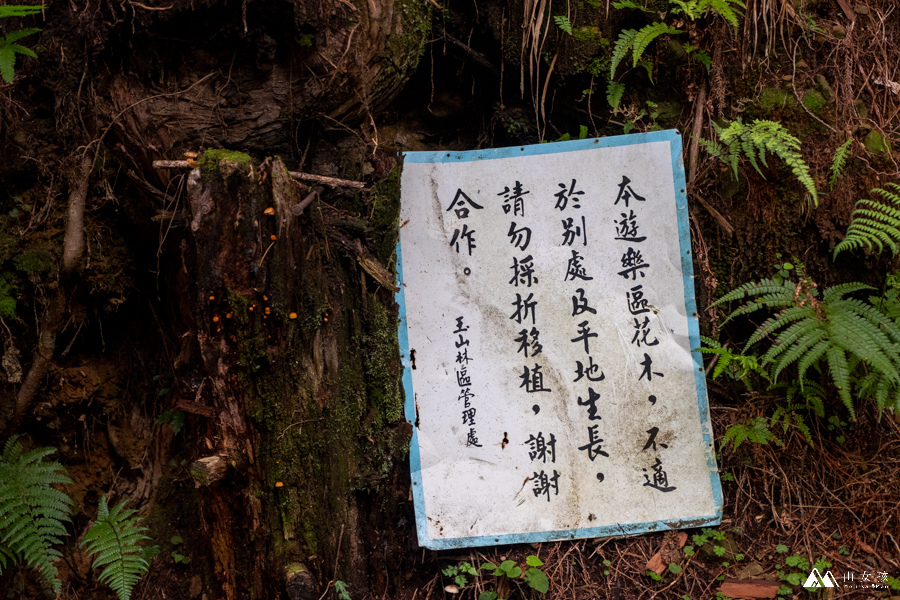 本遊樂區花木，不適
於別處及平地生長，
請勿採折移植，謝謝
合作。
玉山林區管理處
山女孩